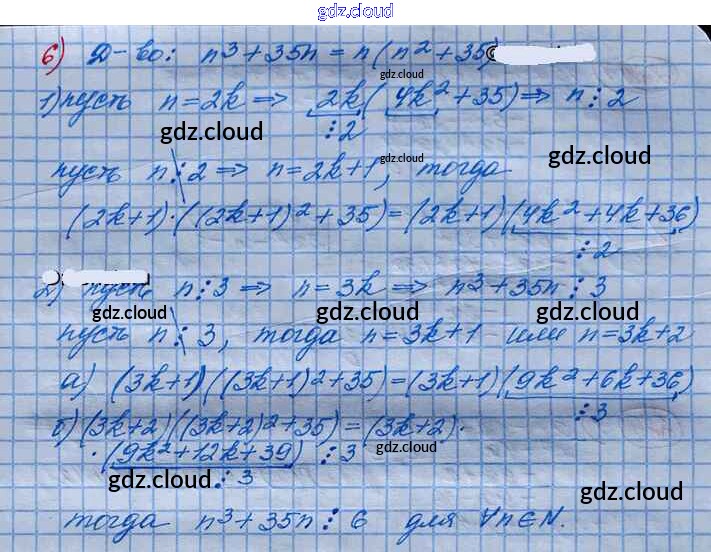 gdz.cloud
6) Д-во: n³+35n = n(n²+35)
gdz.cloud
1) пусть n=2k ⇒ 2k(4k²+35) ⇒ n⋮2
gdz.cloud ⋮2
gdz.cloud gdz.cloud
пусть n⋮̸2 ⇒ n=2k+1, тогда
(2k+1)·((2k+1)²+35)=(2k+1)(4k²+4k+36)
⋮2
2) пусть n⋮3 ⇒ n=3k ⇒ n³+35n⋮3
gdz.cloud gdz.cloud gdz.cloud
пусть n⋮̸3, тогда n=3k+1 или n=3k+2
а) (3k+1)((3k+1)²+35)=(3k+1)(9k²+6k+36)
⋮3
б) (3k+2)((3k+2)²+35)=(3k+2)·
·(9k²+12k+39) ⋮3 gdz.cloud
gdz.cloud ⋮3
gdz.cloud
тогда n³+35n⋮6 для ∀n∈N.